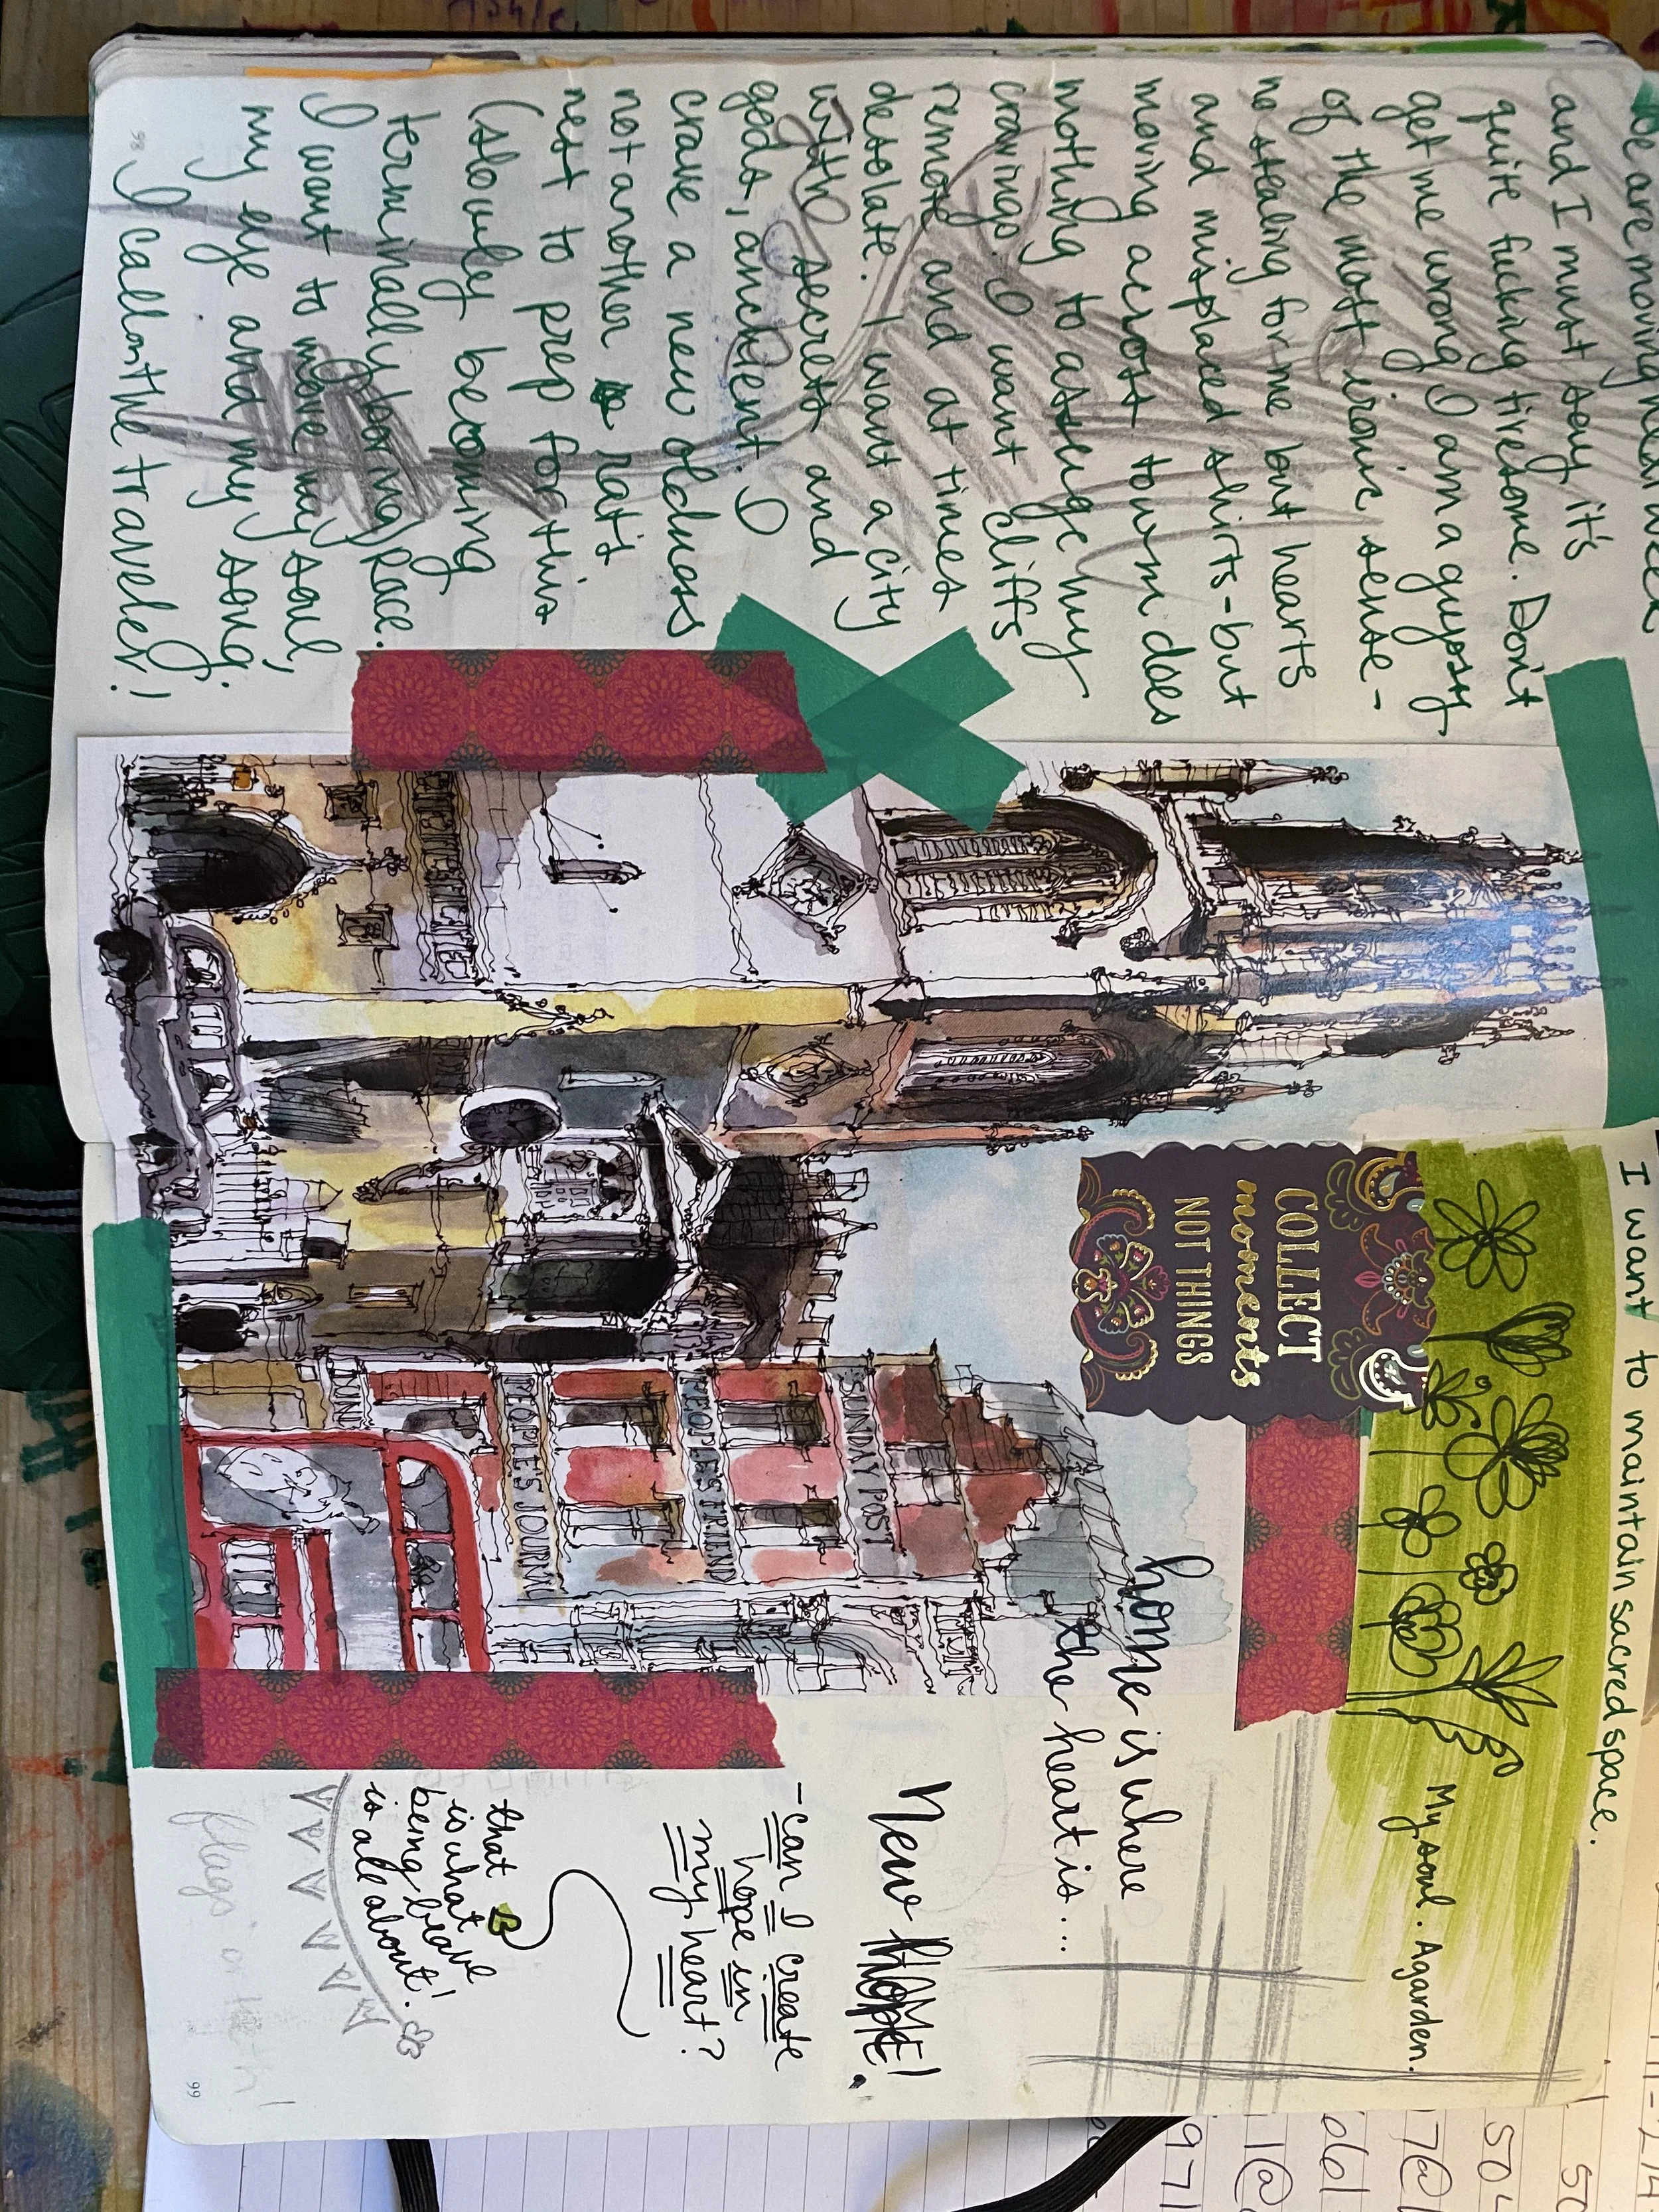 we are moving next week
and I must say it's
quite fucking tiresome. Don't
get me wrong I am a gypsy
of the most ironic sense -
no stealing for me but hearts
and misplaced shirts - but
moving across town does
nothing to assuage my
cravings. I want cliffs
remote and at times
desolate. I want a city
with secrets and
gods, ancient. I
crave a new oldness
not another rat's
nest to prep for this
(slowly becoming
terminally boring) race.
I want to move my soul,
my eye and my song.
I call on the traveler!
98
I want to maintain sacred space.
My soul. A garden.
COLLECT
moments
NOT THINGS
home is where
the heart is...
SUNDAY POST
PEOPLE'S FRIEND
PEOPLE'S JOURNAL
New
- can I create
hope in
my heart?
that is
is what
being brave
is all about!
flags or
99